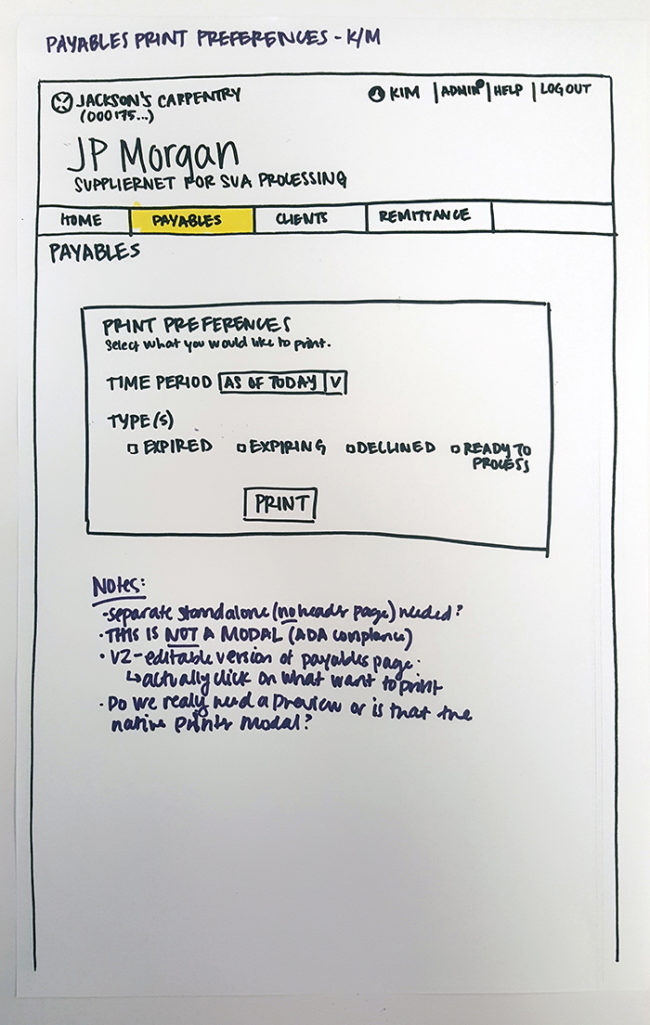 PAYABLES PRINT PREFERENCES - K/M
JACKSON'S CARPENTRY
(000175...)
KIM | ADMIN | HELP | LOG OUT
JP Morgan
SUPPLIERNET FOR SUA PROCESSING
HOME
PAYABLES
CLIENTS
REMITTANCE
PAYABLES
PRINT PREFERENCES
Select what you would like to print.
TIME PERIOD AS OF TODAY V
TYPE(S)
EXPIRED
EXPIRING
DECLINED
READY TO
PROCESS
PRINT
Notes:
- separate standalone (no header page) needed?
• THIS IS NOT A MODAL (ADA compliance)
• V2 - editable version of payables page:
↳ actually click on what want to print
• Do we really need a Preview or is that the
native printer modal?